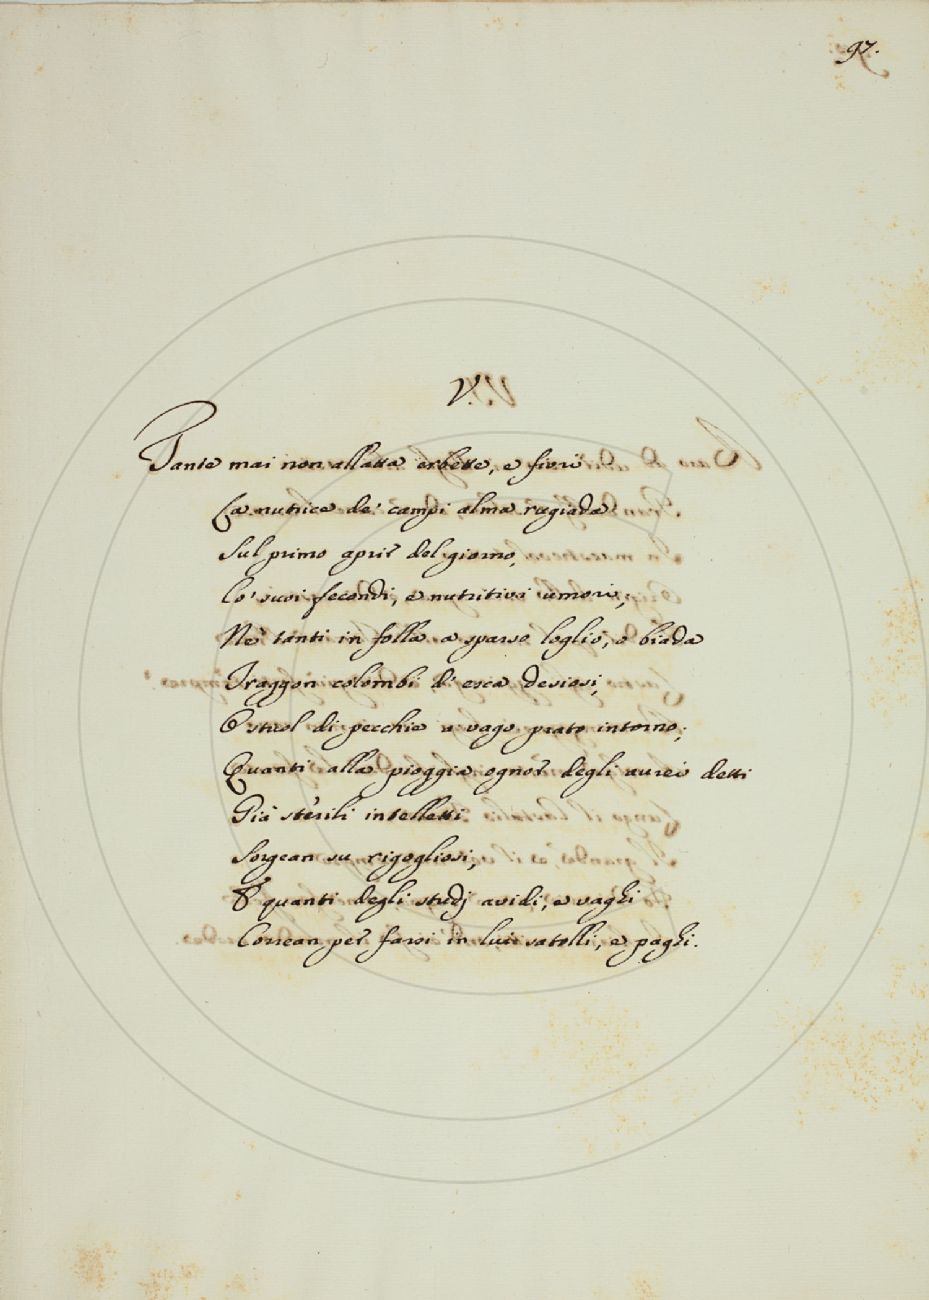 97.
V.
Tante mai non allatta erbette, e fiori
La nutrice de' campi alma rugiada
Sul primo aprir del giorno,
Co' suoi fecondi, e nutritivi umori,
Nè tanti in folla a sparso loglio, o biada
Traggon colombi d'esca desiosi,
O stuol di pecchie a vago prato intorno;
Quanti alla pioggia ognor degli aurei detti
Già sterili intelletti
Sorgean su rigogliosi,
E quanti degli studj avidi, e vaghi
Correan per farsi in lui satolli, e paghi.